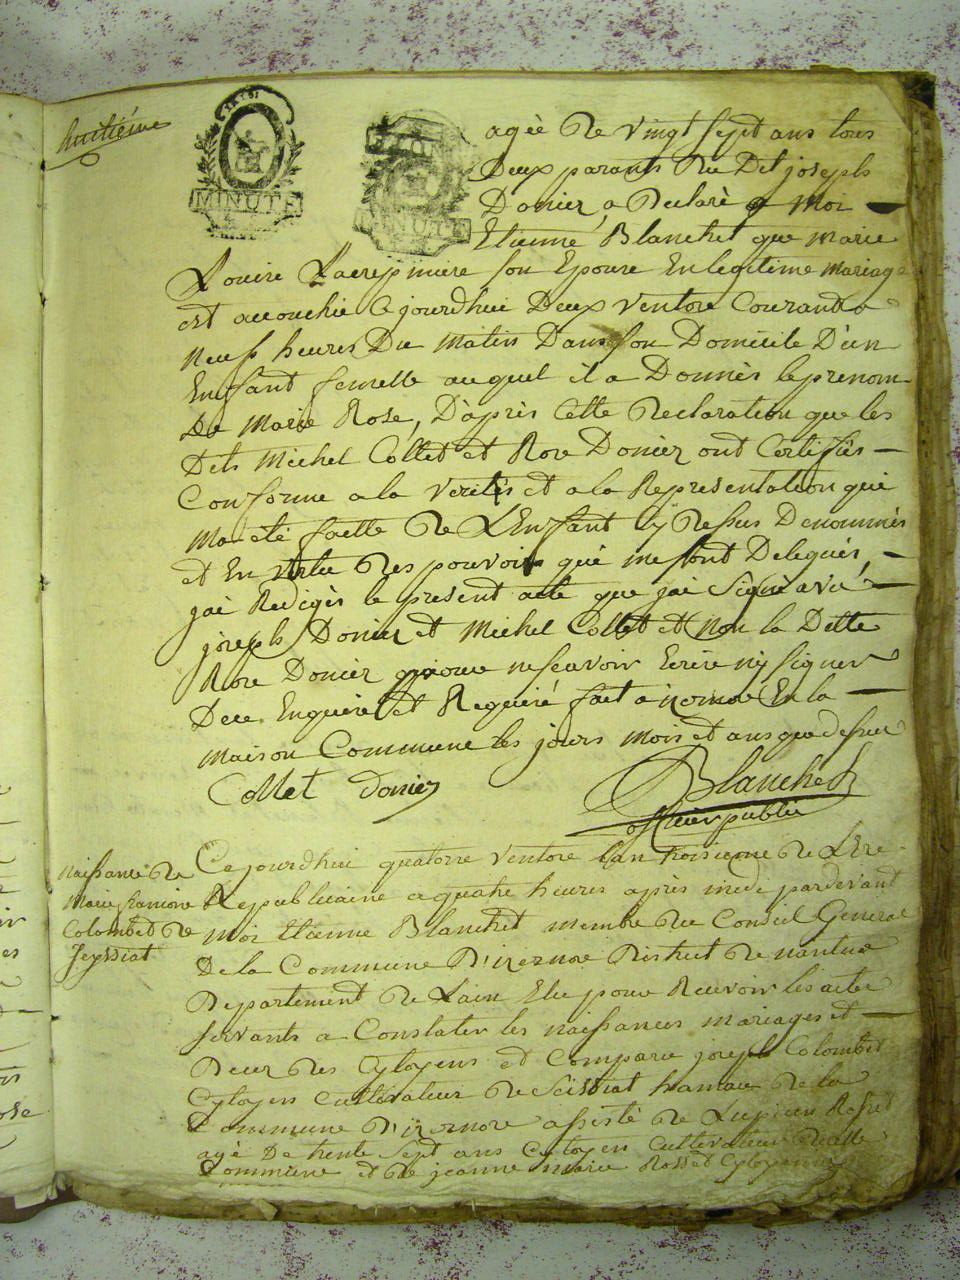 huitiéme
MINUTE
MINUTE
agée de vingt sept ans tous
Deux parants du Dit joseph
Donier, a Declaré a Moi
Etienne Blanchet que Marie
Louise Lacrepiniere son Epouse En legitime Mariage
est accouchée Ce jourdhui Deux ventose Courand a
Neuf heures Du Matin Dans son Domicile D'un
Enfant femelle auquel il a Donnés le prenom
De Marie Rose, D'après Cette Declaration que les
Dits Michel Collet et Rose Donier ont Certifiés
Conforme a la verités et a la Representation qui
Ma été faitte de L'Enfant cy Dessus Denommés
et En vertu des pouvoir qui me sont Delegués,
jai Redigés le present acte que jai Signé avec
joseph Donier et Michel Collet et Non la Ditte
Rose Donier pour ne scavoir Ecrire ny signer
De ce Enquire et Requiré fait a izernore En la
Maison Commune les jours Mois et ans que dessus
Collet Donier Blanchet
officier public
Naissance de
Marie francoise
Colombet de
Seyssiat
Ce jourdhui quatorze ventose Lan troisieme de L'Ere
Republicaine a quatre heures après midi pardevant
Moi Etienne Blanchet membre du Conseil General
De la Commune D'izernore District de nantua
Departement de Lain Elu pour Recevoir les actes
servants a Constater les naissances mariages et
Deces des Cytoyens est Comparu joseph Colombet
Cytoyen cultivateur de Seissiat hameau de la
Commune D'izernore assisté de Rosset
agé De trente sept ans Citoyen Cultivateur
Commune et de jeanne marie Rosset Cytoyenne